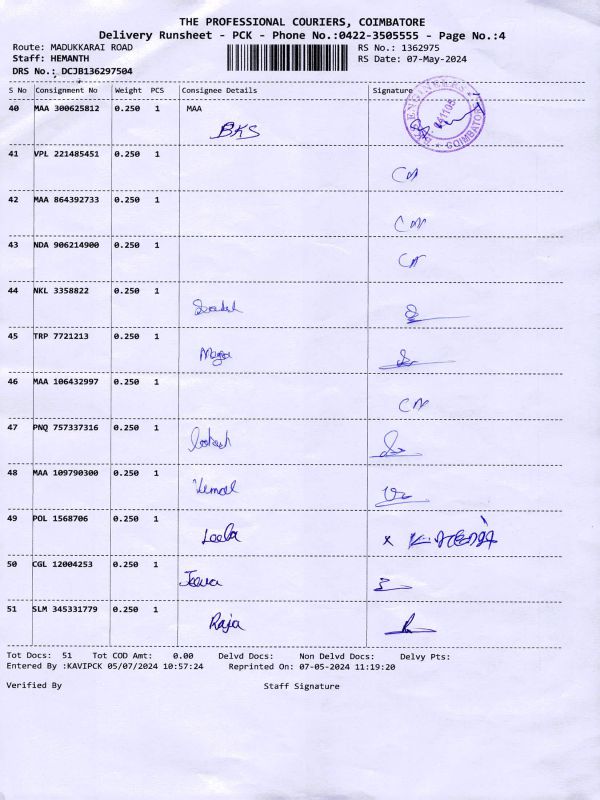 THE PROFESSIONAL COURIERS, COIMBATORE
Delivery Runsheet - PCK - Phone No.:0422-3505555 - Page No.:4
Route: MADUKKARAI ROAD RS No.: 1362975
Staff: HEMANTH RS Date: 07-May-2024
DRS No.: DCJB136297504
S No Consignment No Weight PCS Consignee Details Signature
40 MAA 300625812 0.250 1 MAA
BKS
41 VPL 221485451 0.250 1
42 MAA 864392733 0.250 1
43 NDA 906214900 0.250 1
44 NKL 3358822 0.250 1
45 TRP 7721213 0.250 1
46 MAA 106432997 0.250 1
47 PNQ 757337316 0.250 1
48 MAA 109790300 0.250 1
Vimal
49 POL 1568706 0.250 1
Leela
50 CGL 12004253 0.250 1
Jeeva
51 SLM 345331779 0.250 1
Raja
Tot Docs: 51 Tot COD Amt: 0.00 Delvd Docs: Non Delvd Docs: Delvy Pts:
Entered By :KAVIPCK 05/07/2024 10:57:24 Reprinted On: 07-05-2024 11:19:20
Verified By Staff Signature